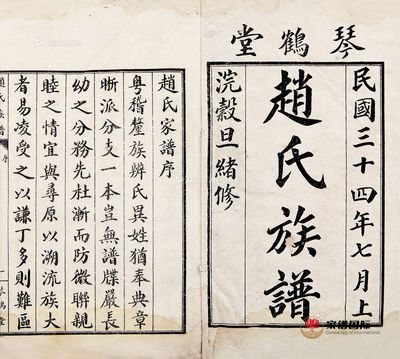 琴鶴堂
民國三十四年七月上
趙氏族譜
浣穀旦緒修
趙氏家譜序
粵稽釐族辨氏異姓猶奉典章
晰派分支一本豈無譜牒嚴長
幼之分務先杜漸而防微聯親
睦之情宜與尋原以溯流族大
者易凌受之以謙丁多則難區
趙氏族譜 序 一 琴鶴堂
家谱国际